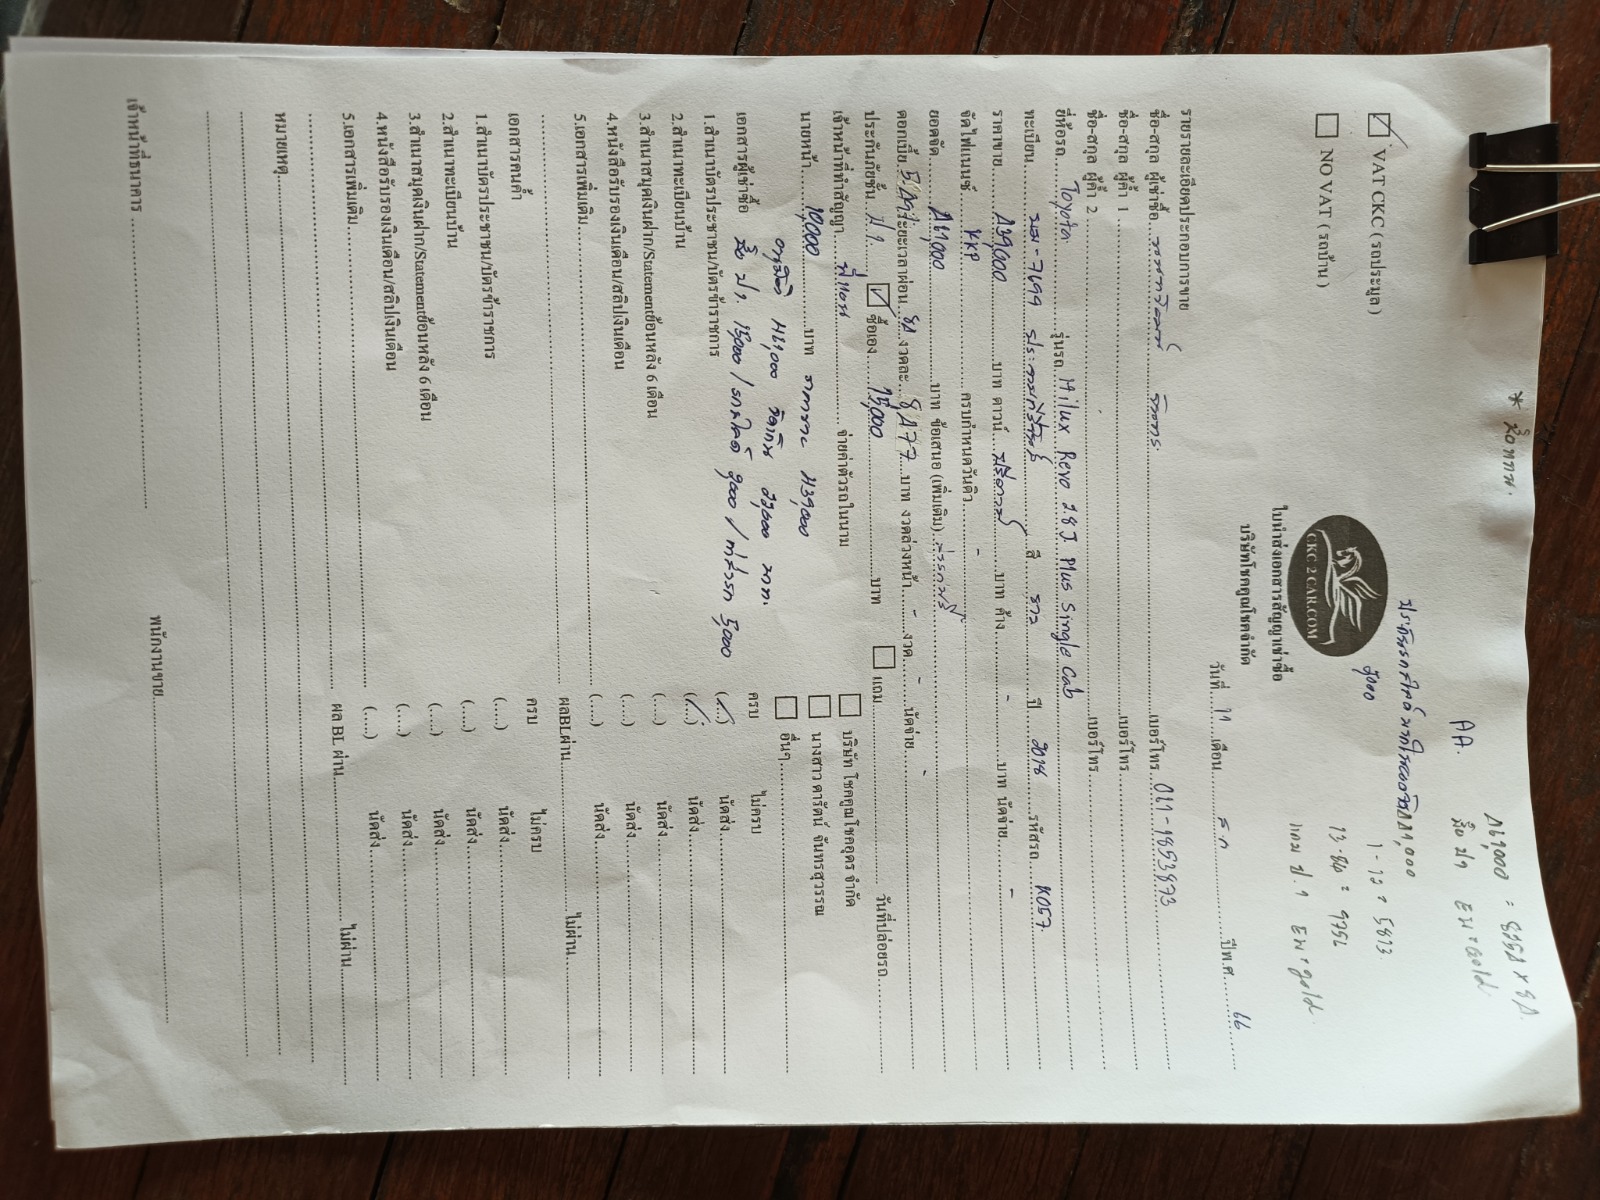 * ซื้อหาย.
AA.
ซื้อ ป1
1 - 72 = 5813
13.50 = 9752
แถม ป.1
☑ VAT CKC ( รถประมูล )
☐ NO VAT ( รถบ้าน )
CKC 2 CAR.COM
ใบนำส่งเอกสารสัญญาเช่าซื้อ
บริษัทโชคคูณโชคจำกัด
วันที่ 11 เดือน ธ.ค ปีพ.ศ. 66
รายรายละเอียดประกอบการขาย
ชื่อ-สกุล ผู้เช่าซื้อ เบอร์โทร 061-1853873
ชื่อ-สกุล ผู้ค้ำ 1 เบอร์โทร
ชื่อ-สกุล ผู้ค้ำ 2 เบอร์โทร
ยี่ห้อรถ Toyota รุ่นรถ Hilux Revo 2.8 J Plus Single Cab
ทะเบียน สี ขาว ปี 2018 รหัสรถ K057
ราคาขาย 439,000 บาท ดาวน์ ฟรีดาวน์ บาท ค้าง - บาท นัดจ่าย -
จัดไฟแนนซ์ KKP ครบกำหนดวันดิว -
ยอดจัด 461,000 บาท ข้อเสนอ (เพิ่มเติม)
ดอกเบี้ย ระยะเวลาผ่อน งวดละ บาท งวดล่วงหน้า - งวด - นัดจ่าย -
ประกันภัยชั้น ป1 ☑ ซื้อเอง 15,000 บาท ☐ แถม วันที่ปล่อยรถ
เจ้าหน้าที่ทำสัญญา จ่ายค่าตัวรถในนาม ☐ บริษัท โชคคูณโชคอุดร จำกัด
นายหน้า 10,000 บาท ราคาขาย 439,000 ☐ นางสาว ดารัตน์ จันทรสุวรรณ
อนุมัติ 461,000 จัดเกิน 22,000 บาท. ☐ อื่นๆ
เอกสารผู้เช่าซื้อ ซื้อ ป1 15,000 / 5,000 ครบ ไม่ครบ
1.สำเนาบัตรประชาชน/บัตรข้าราชการ (✓) นัดส่ง
2.สำเนาทะเบียนบ้าน (✓) นัดส่ง
3.สำเนาสมุดเงินฝาก/Statementย้อนหลัง 6 เดือน (....) นัดส่ง
4.หนังสือรับรองเงินเดือน/สลิปเงินเดือน (....) นัดส่ง
5.เอกสารเพิ่มเติม (....) นัดส่ง
ผลBLผ่าน ไม่ผ่าน
เอกสารคนค้ำ ครบ ไม่ครบ
1.สำเนาบัตรประชาชน/บัตรข้าราชการ (....) นัดส่ง
2.สำเนาทะเบียนบ้าน (....) นัดส่ง
3.สำเนาสมุดเงินฝาก/Statementย้อนหลัง 6 เดือน (....) นัดส่ง
4.หนังสือรับรองเงินเดือน/สลิปเงินเดือน (....) นัดส่ง
5.เอกสารเพิ่มเติม (....) นัดส่ง
ผล BL ผ่าน ไม่ผ่าน
หมายเหตุ
เจ้าหน้าที่ธนาคาร พนักงานขาย